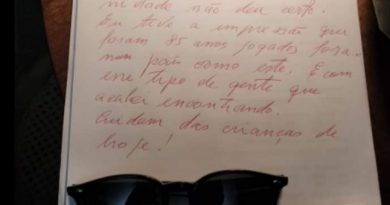 nidade não deu certo.
Eu tive a impressão que
foram 85 anos jogados fora.
num país como este. E com
esse tipo de gente que
acabei encontrando.
Cuidem das crianças de
hoje!